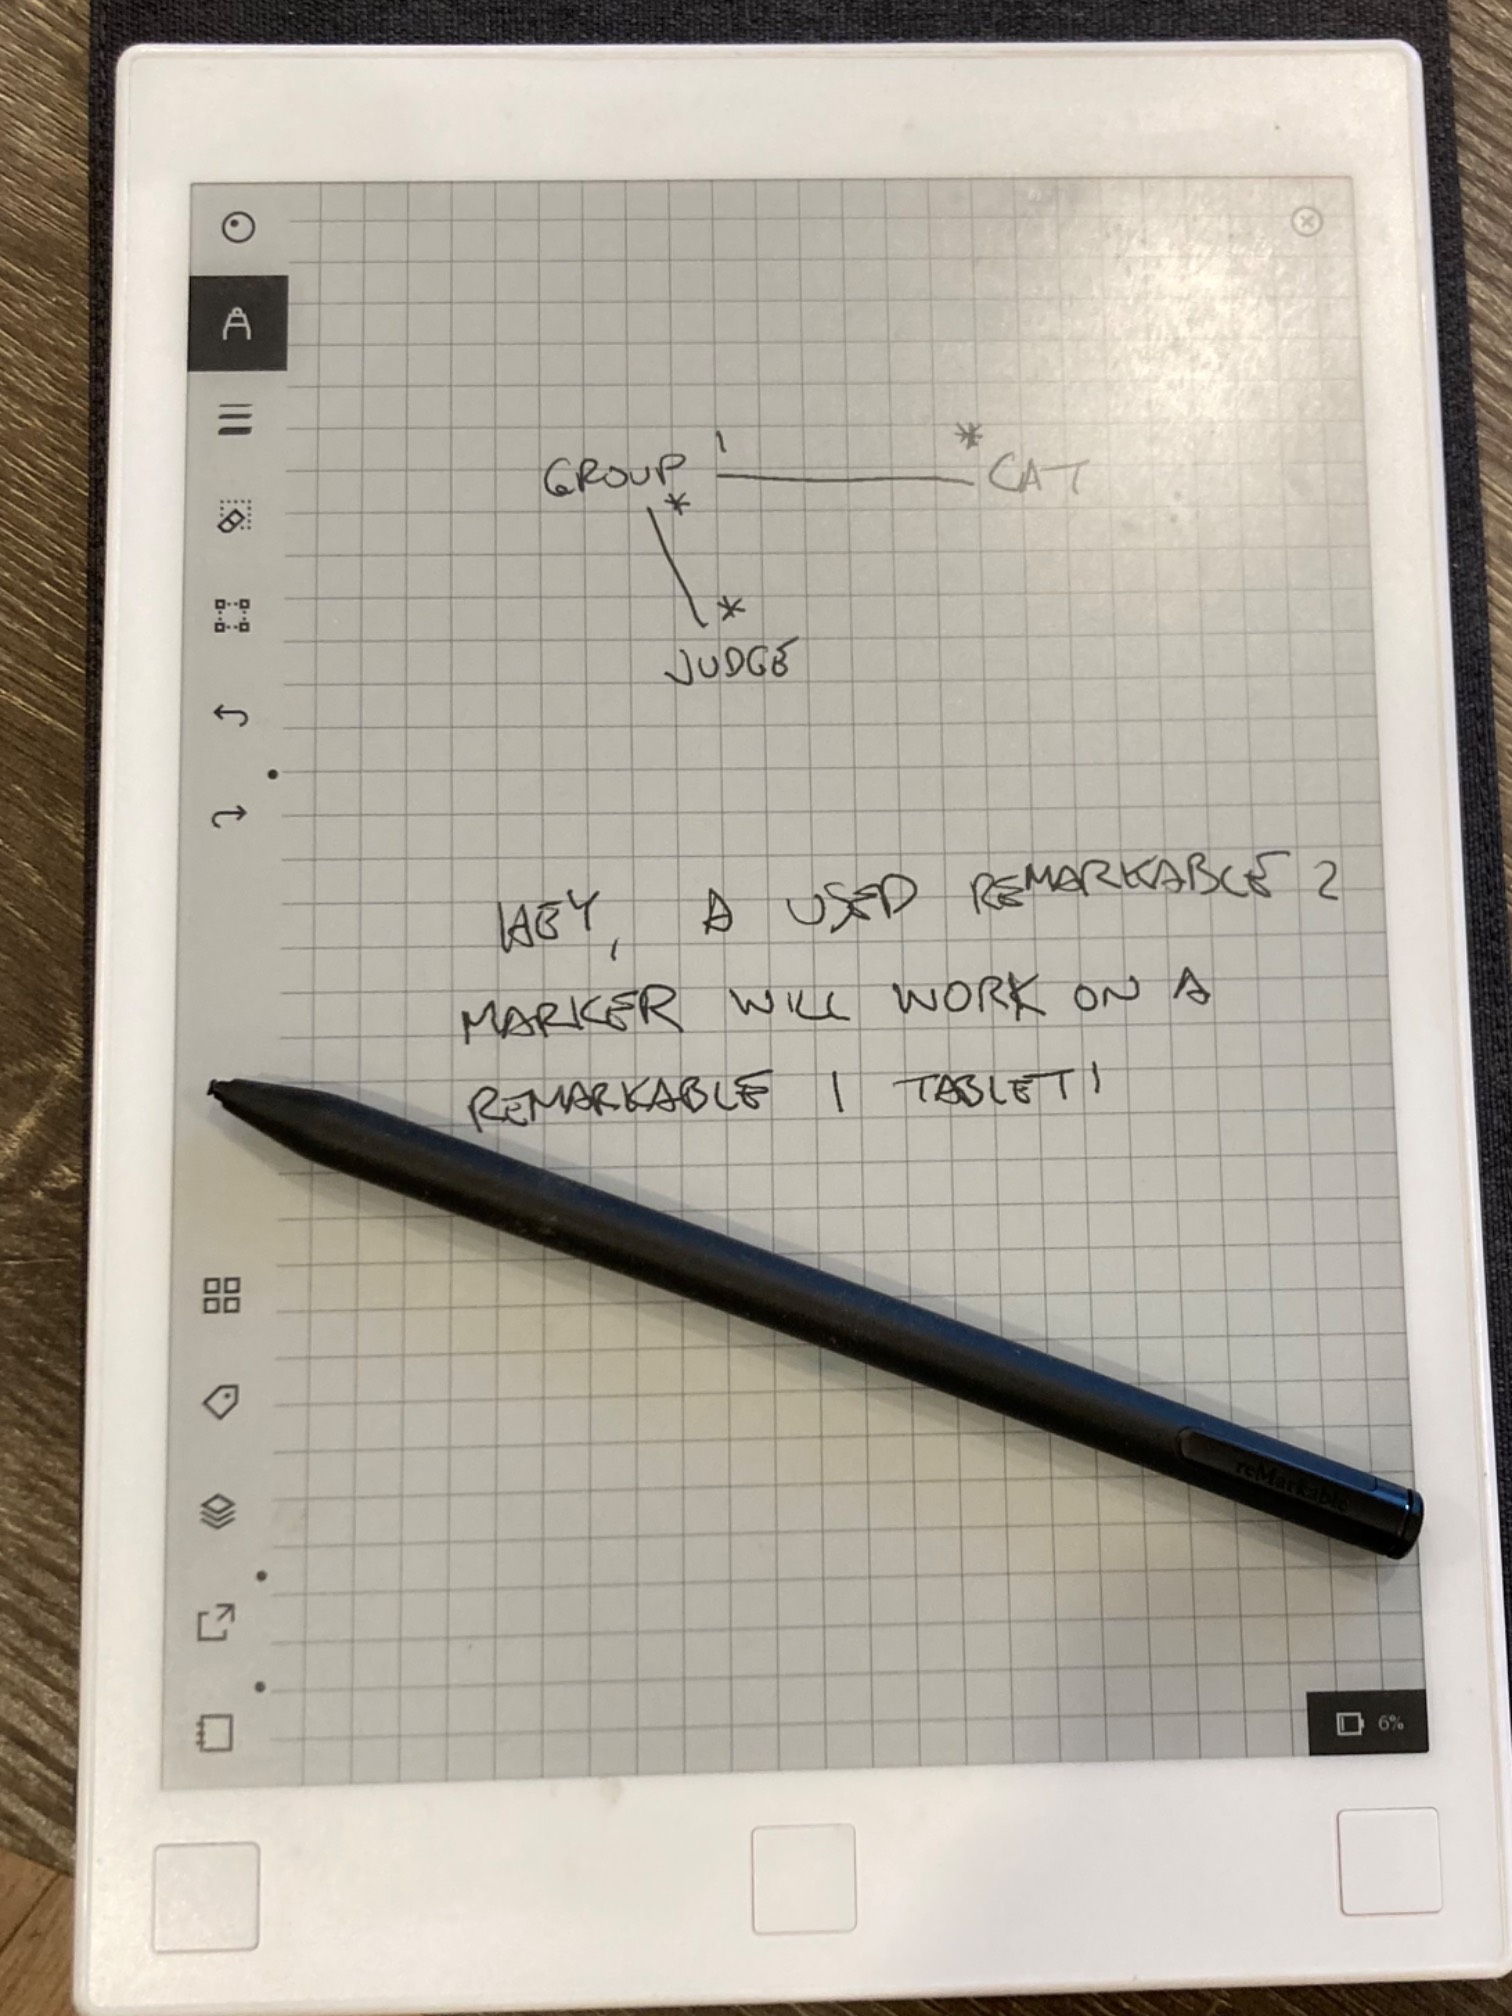 GROUP 1 * CAT
*
*
JUDGE
HEY, A USED REMARKABLE 2
MARKER WILL WORK ON A
REMARKABLE 1 TABLET!
reMarkable
6%